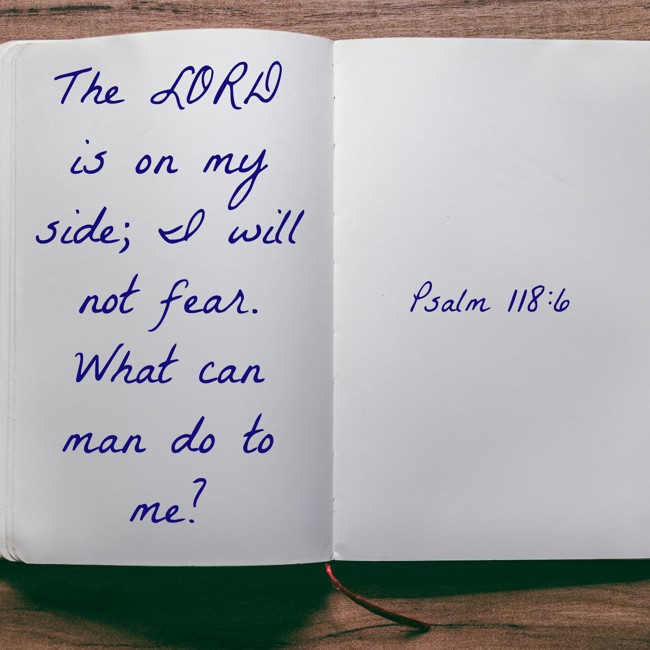 The LORD
is on my
side; I will
not fear.
What can
man do to
me?
Psalm 118:6